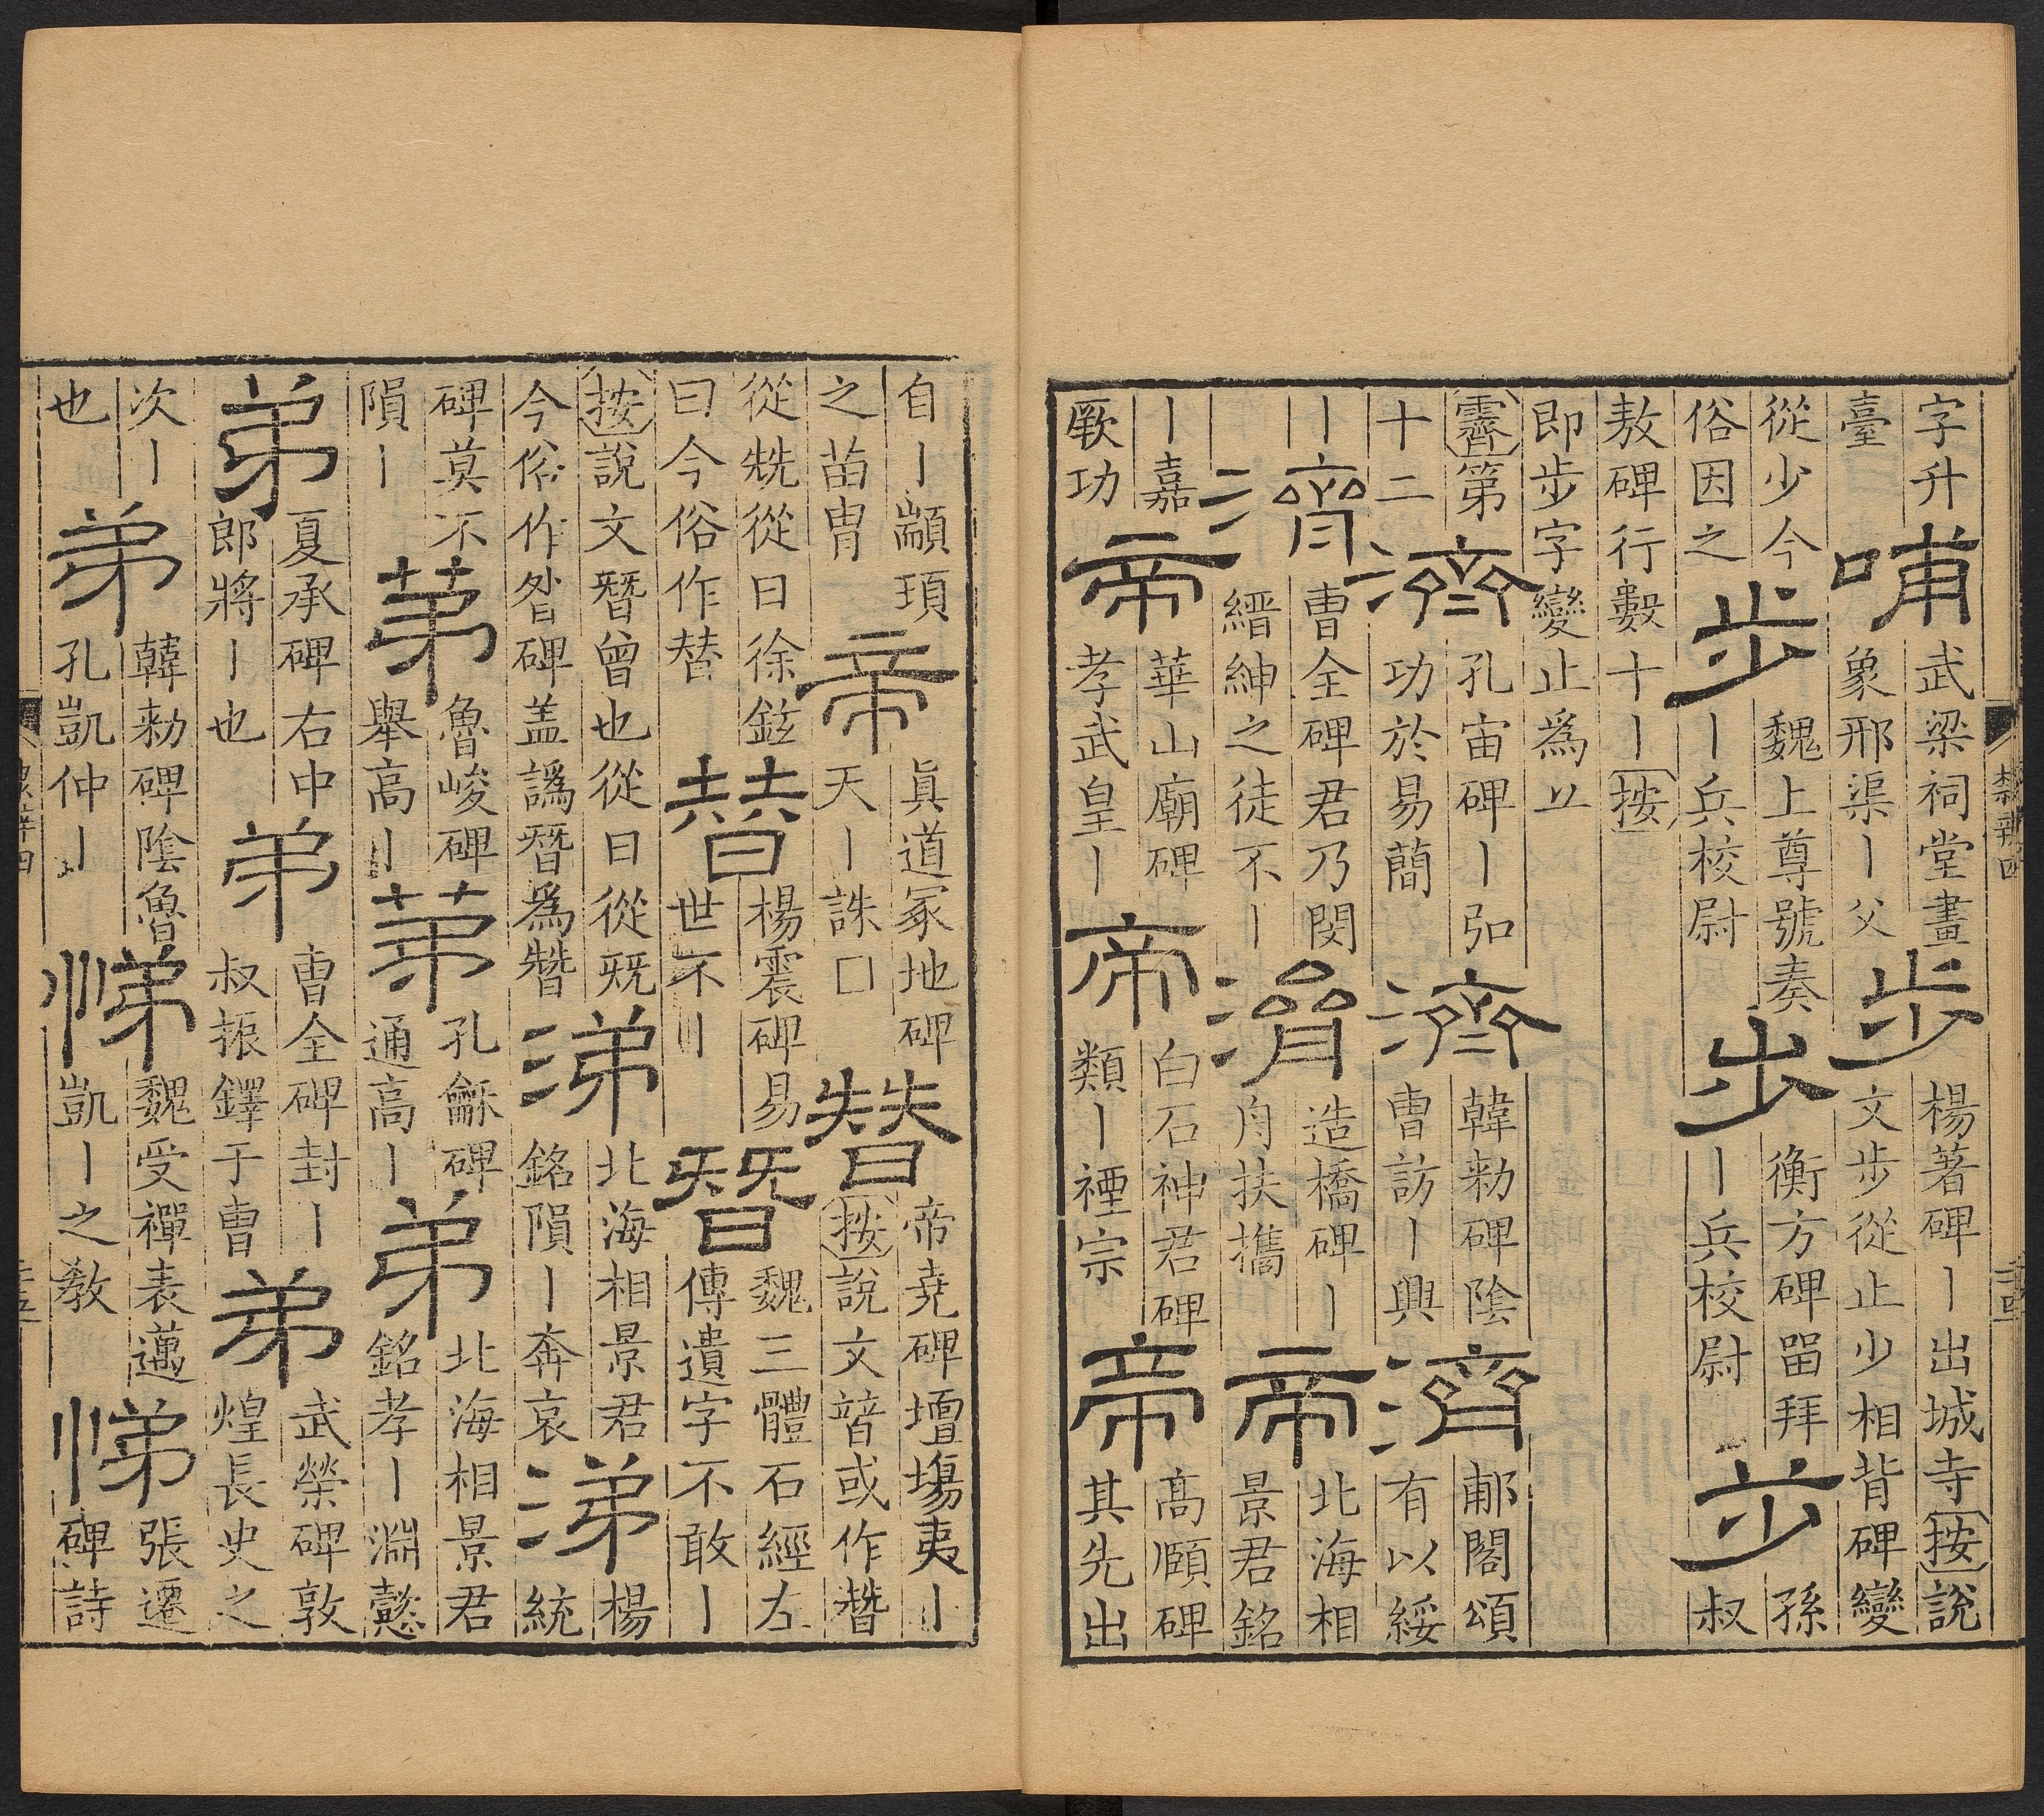 隸辨四
二十四
字升臺 哺 武梁祠堂畫象邢渠丨父 步 楊著碑丨出城寺按說文步從止少相背碑變
從少今俗因之 步 魏上尊號奏丨兵校尉 步 衡方碑畱拜丨兵校尉 步 孫叔
敖碑行數十丨按即步字變止爲
霽第十二 濟 孔宙碑丨弘功於易簡 濟 韓勑碑陰曹訪丨興 濟 郙閣頌有以綏
丨 濟 曹全碑君乃閔縉紳之徒不丨 濟 造橋碑丨舟扶攜 帝 北海相景君銘
丨嘉厥功 帝 華山廟碑孝武皇丨 帝 白石神君碑類丨禋宗 帝 高頤碑其先出
自丨顓頊之苗冑 帝 眞道冢地碑天丨誅□ 替 帝堯碑壇塲夷丨按說文暜或作朁
從兟從曰徐鉉曰今俗作替 替 楊震碑易世不丨 朁 魏三體石經左傳遺字不敢丨
按說文朁曾也從曰從兓今俗作昝碑盖譌朁爲朁 涕 北海相景君銘隕丨奔哀 涕 楊統
碑莫不隕丨 苐 魯峻碑舉高丨 苐 孔龢碑通高丨 弟 北海相景君銘孝丨淵懿
弟 夏承碑右中郎將丨也 弟 曹全碑封丨叔振鐸于曹 弟 武榮碑敦煌長史之
次丨也 弟 韓勑碑陰魯孔凱仲丨 悌 魏受禪表邁凱丨之敎 悌 張遷碑詩